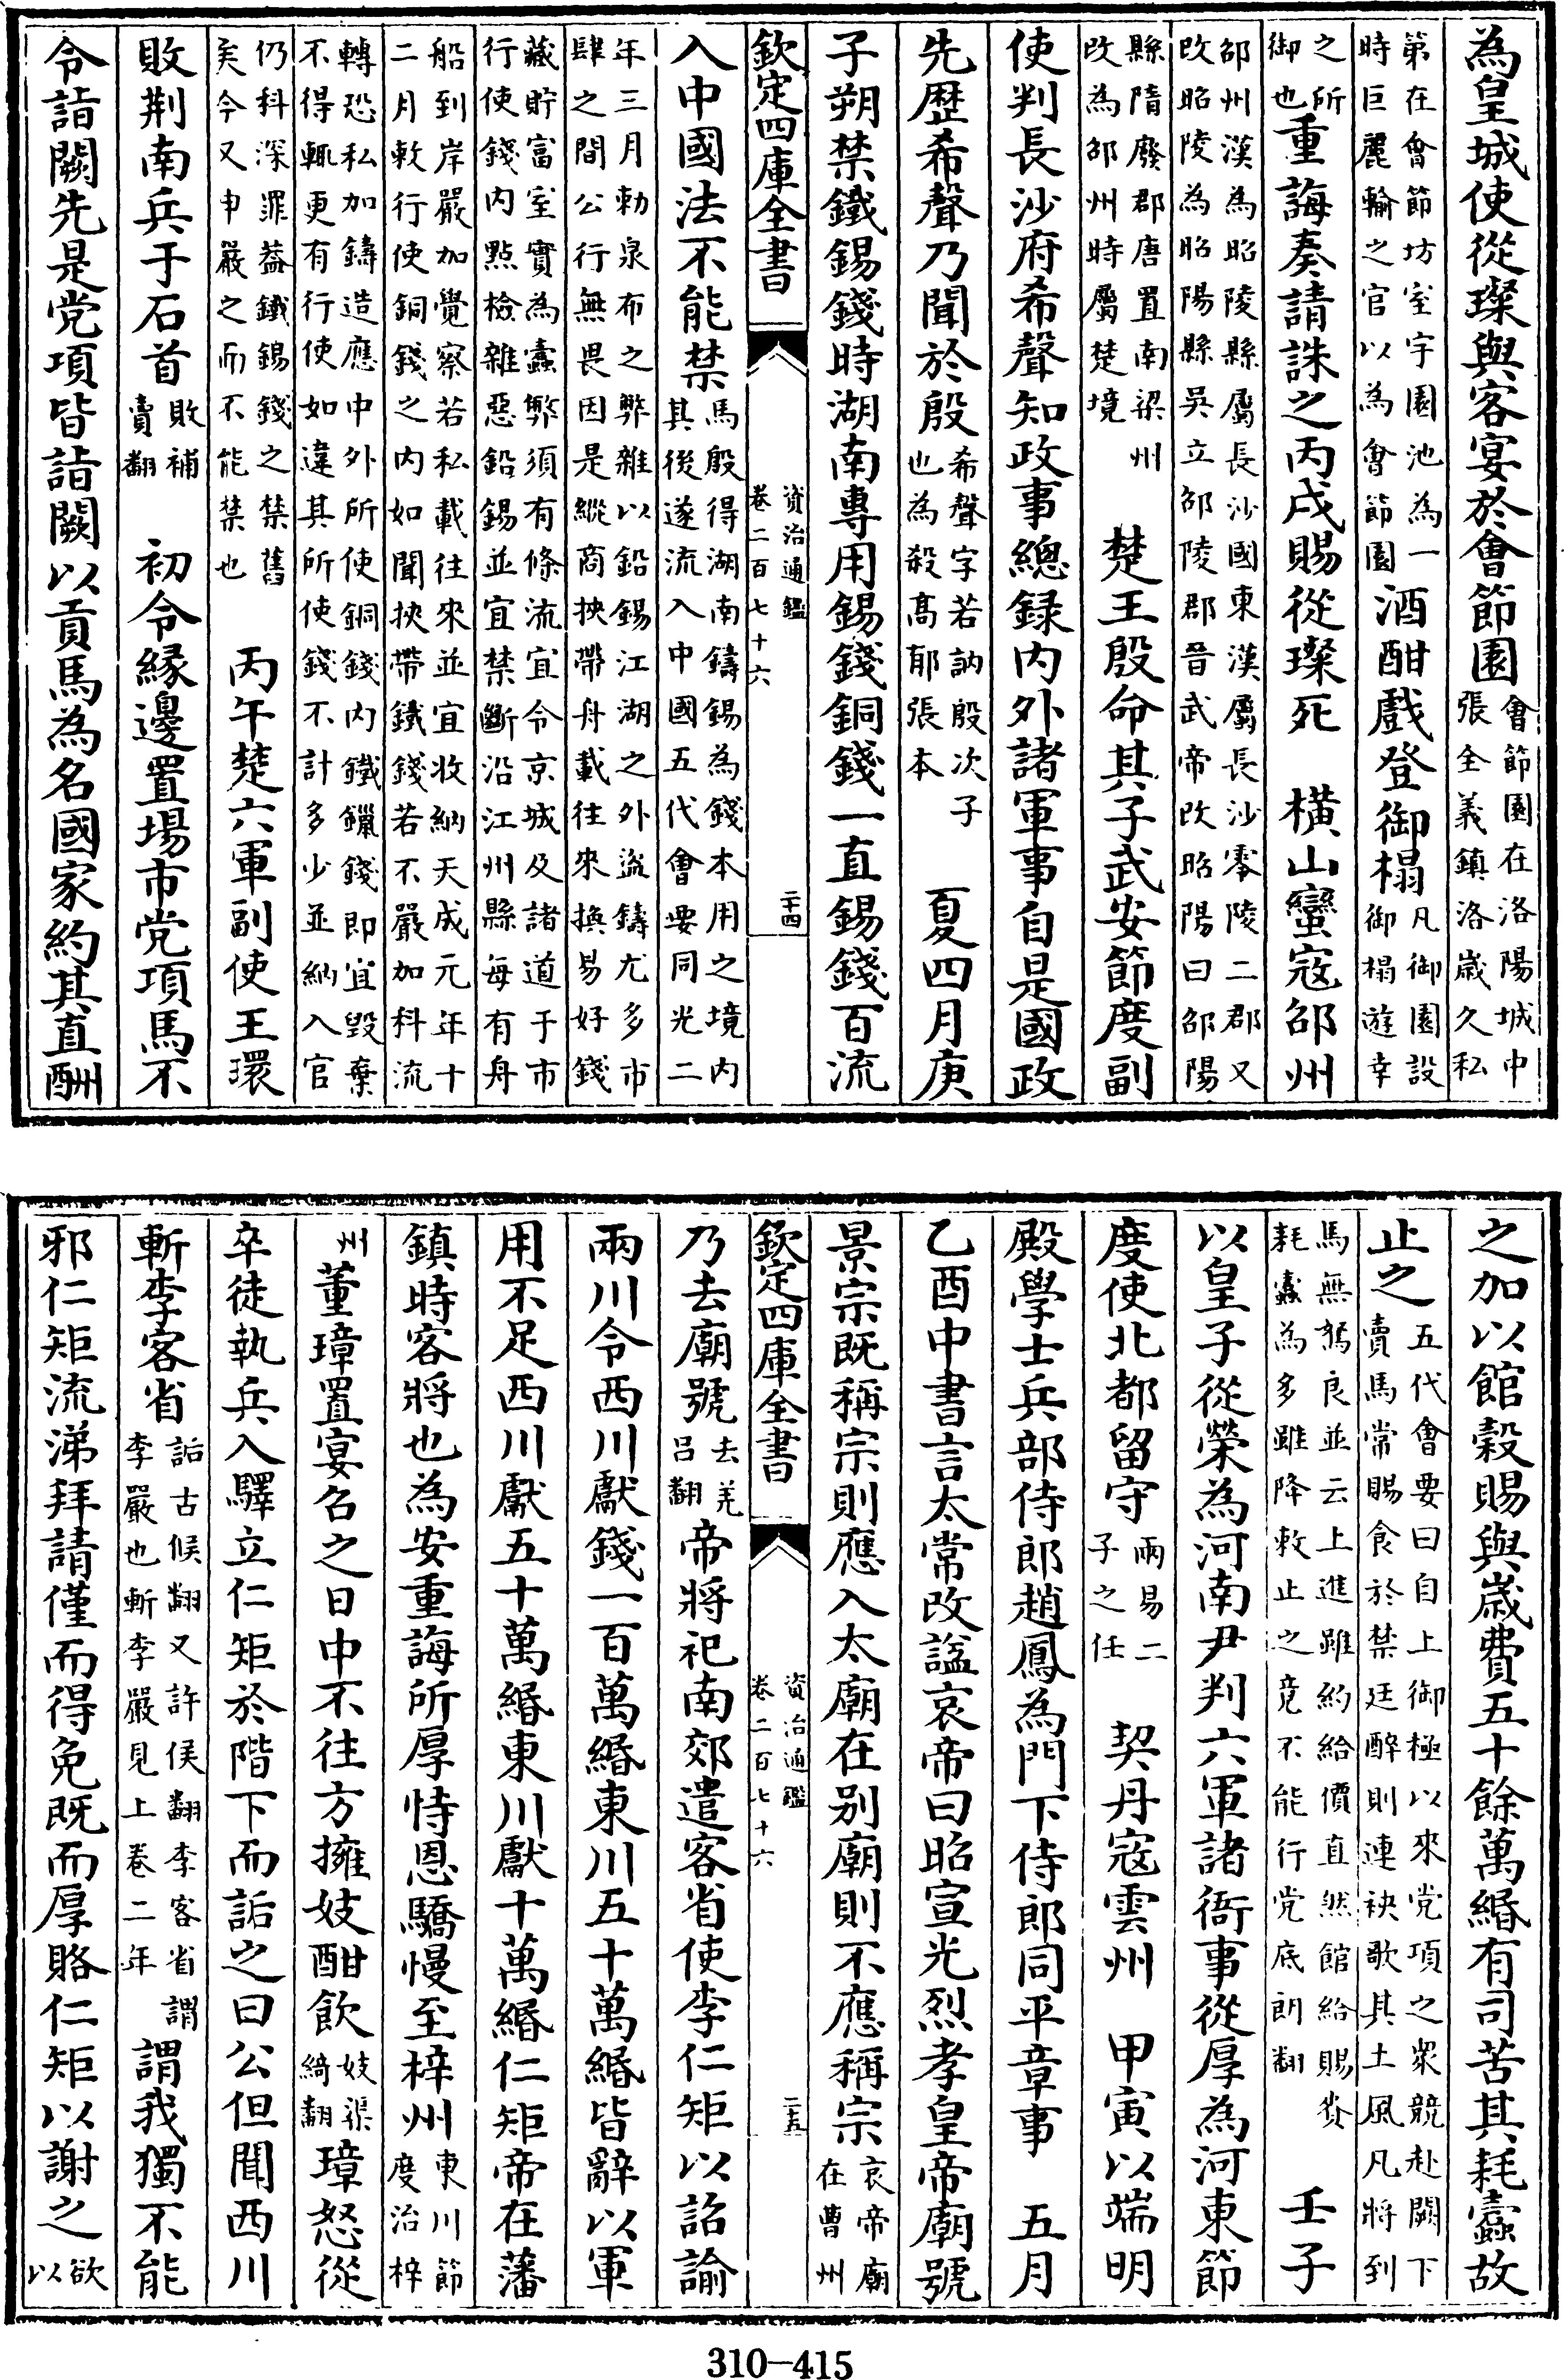 為皇城使從璨與客宴於會節園會節園在洛陽城中張全義鎮洛歲久私
第在會節坊室宇園池為一時巨麗輸之官以為會節園酒酣戲登御榻凡御園設御榻遊幸
之所御也重誨奏請誅之丙戌賜從璨死　橫山蠻寇邵州
邵州漢為昭陵縣屬長沙國東漢屬長沙零陵二郡又改昭陵為昭陽縣吳立邵陵郡晉武帝改昭陽曰邵陽
縣隋廢郡唐置南梁州改為邵州時屬楚境　楚王殷命其子武安節度副
使判長沙府希聲知政事總録内外諸軍事自是國政
先歴希聲乃聞於殷希聲字若訥殷次子也為殺髙郁張本　夏四月庚
子朔禁鐵錫錢時湖南專用錫錢銅錢一直錫錢百流
欽定四庫全書　資治通鑑　卷二百七十六　二十四
入中國法不能禁馬殷得湖南鑄錫為錢本用之境内其後遂流入中國五代會要同光二
年三月勅泉布之弊雜以鉛錫江湖之外盜鑄尤多市肆之間公行無畏因是縱商挾帶舟載往來換易好錢
藏貯富室實為蠧弊須有條流宜令京城及諸道于市行使錢内點檢雜惡鉛錫並宜禁斷沿江州縣每有舟
船到岸嚴加覺察若私載往來並宜收納天成元年十二月敕行使銅錢之内如聞挾帶鐵錢若不嚴加科流
轉恐私加鑄造應中外所使銅錢内鐵鑞錢即宜毀棄不得輒更有行使如違其所使錢不計多少並納入官
仍科深罪葢鐵錫錢之禁舊矣今又申嚴之而不能禁也　丙午楚六軍副使王環
敗荆南兵于石首敗補賣翻　初令緣邊置場市党項馬不
令詣闕先是党項皆詣闕以貢馬為名國家約其直酬
之加以館穀賜與歲費五十餘萬緡有司苦其耗蠧故
止之五代會要曰自上御極以來党項之衆競赴闕下賣馬常賜食於禁廷醉則連袂歌其土風凡將到
馬無駑良並云上進雖約給價直然館給賜賚耗蠧為多雖降敕止之竟不能行党底朗翻　壬子
以皇子從榮為河南尹判六軍諸衞事從厚為河東節
度使北都留守兩易二子之任　契丹寇雲州　甲寅以端明
殿學士兵部侍郎趙鳳為門下侍郎同平章事　五月
乙酉中書言太常改諡哀帝曰昭宣光烈孝皇帝廟號
景宗既稱宗則應入太廟在别廟則不應稱宗哀帝廟在曹州
欽定四庫全書　資治通鑑　卷二百七十六　二十五
乃去廟號去羌呂翻帝將祀南郊遣客省使李仁矩以詔諭
兩川令西川獻錢一百萬緡東川五十萬緡皆辭以軍
用不足西川獻五十萬緡東川獻十萬緡仁矩帝在藩
鎮時客將也為安重誨所厚恃恩驕慢至梓州東川節度治梓
州董璋置宴召之日中不往方擁妓酣飲妓渠綺翻璋怒從
卒徒執兵入驛立仁矩於階下而詬之曰公但聞西川
斬李客省詬古候翻又許侯翻李客省謂李嚴也斬李嚴見上卷二年謂我獨不能
邪仁矩流涕拜請僅而得免既而厚賂仁矩以謝之欲以
310-415